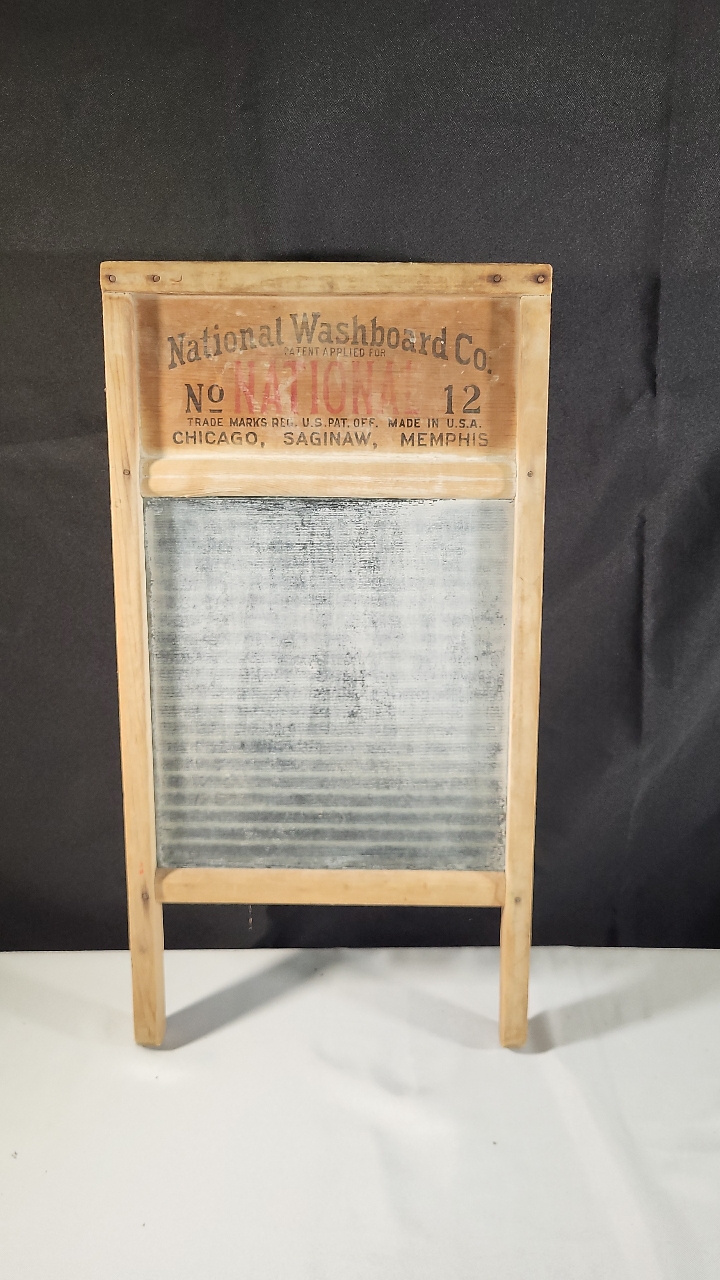 National Washboard Co.
PATENT APPLIED FOR
No NATIONAL 12
TRADE MARKS REG. U.S. PAT. OFF. MADE IN U.S.A.
CHICAGO, SAGINAW, MEMPHIS